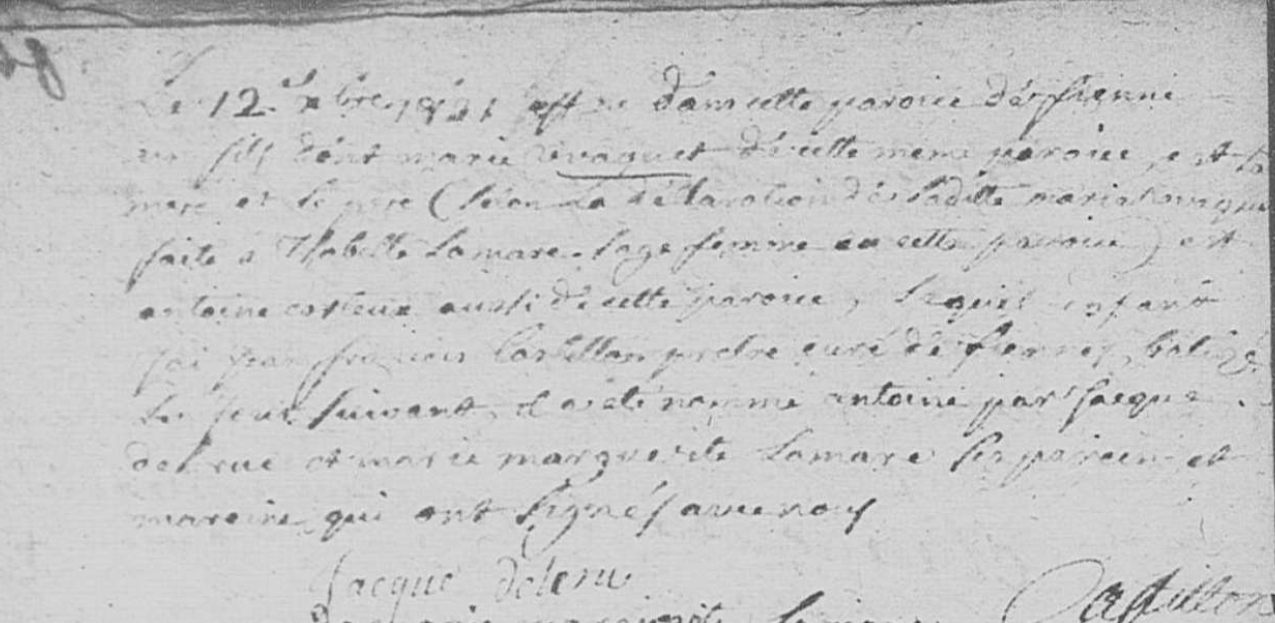 Le 12 Xbre 1821 est né dans cette paroice de fienne
un fils dont marie vvaguet de cette meme paroice est la
mere et le pere (selon la declaration de laditte marie
faite a Isabelle Lamare sage femme en cette paroice) est
antoine costeux aussi de cette paroice, lequel enfant
jai jean francois Castillon pretre curé de fiennes batizé
le jour suivant, il a été nommé antoine par jacque
delrue et marie marguerite Lamare ses parein et
mareine qui ont signés avec nous
Jacque delrue
marie marguerite Lamare Castillon